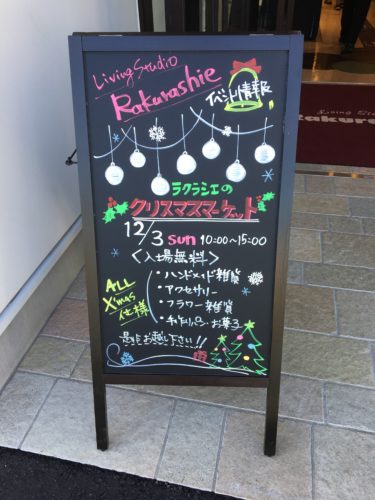 Living Studio
Rakurashie
イベント情報
ラクラシエの
クリスマスマーケット
12/3 SUN 10:00~15:00
<入場無料>
ALL
X'mas
仕様
・ハンドメイド雑貨
・アクセサリー
・フラワー雑貨
・手作りパン・お菓子
是非お越し下さい!!